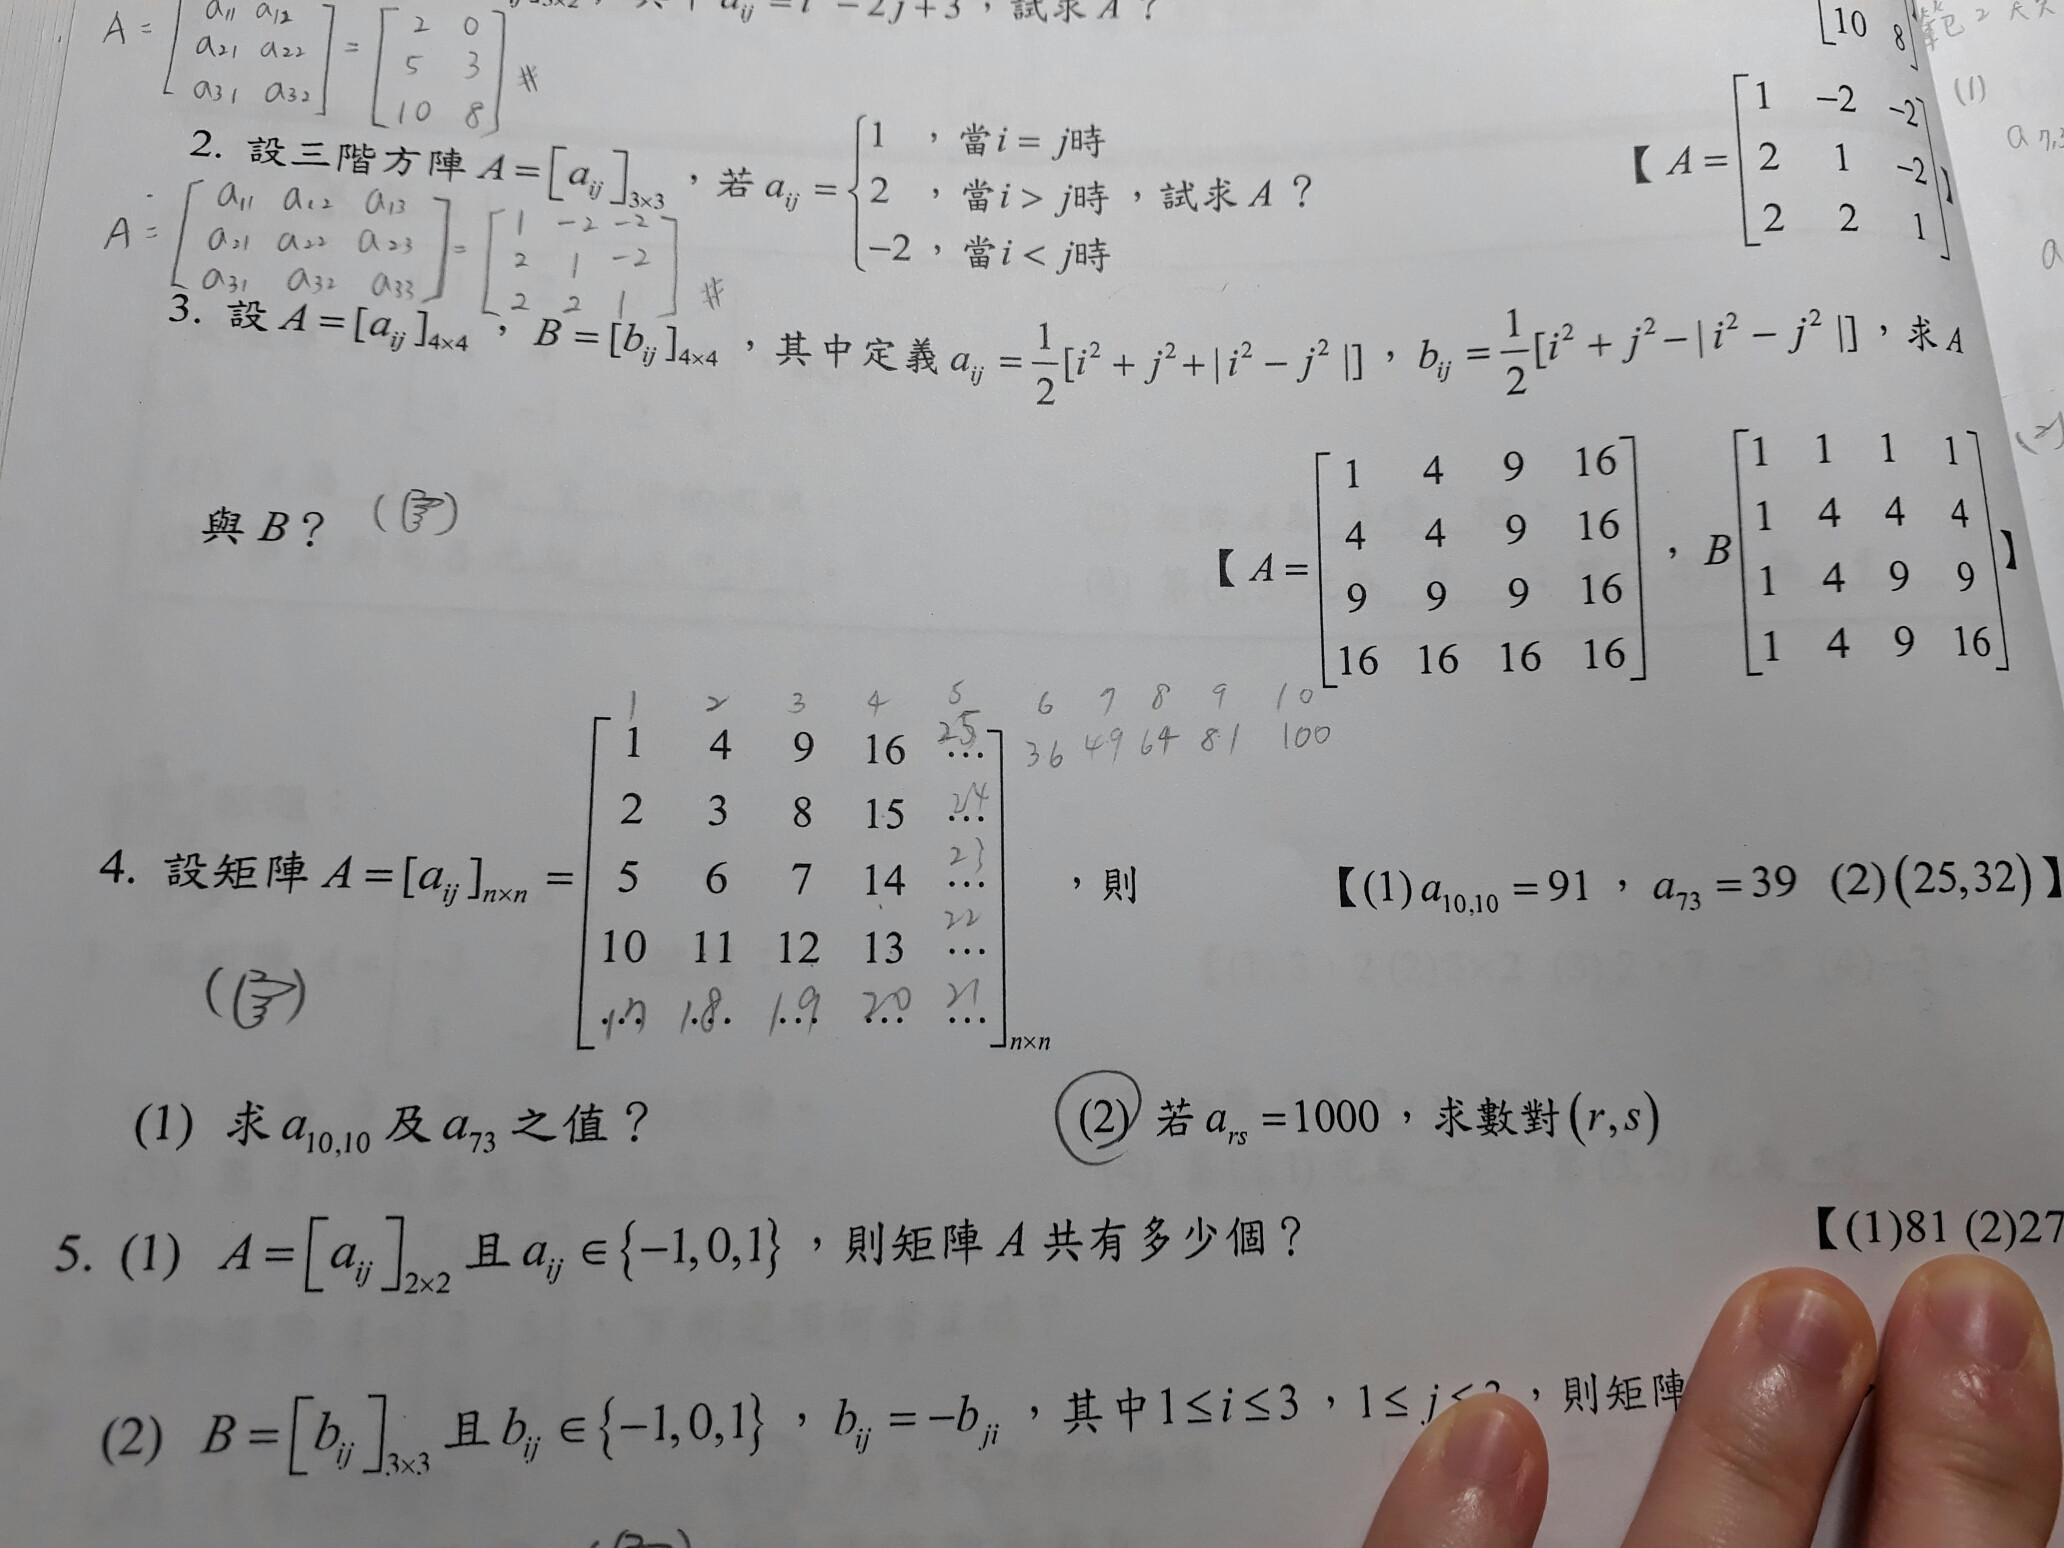 a_{ij} = i² − 2j + 3，試求 A？
A = [a11 a12; a21 a22; a31 a32] = [2 0; 5 3; 10 8] #
[10 8]
2. 設三階方陣 A = [a_{ij}]_{3×3}，若 a_{ij} = {1，當 i = j時; 2，當 i > j時; −2，當 i < j時，試求 A？
【A = [1 −2 −2; 2 1 −2; 2 2 1]】
A = [a11 a12 a13; a21 a22 a23; a31 a32 a33] = [1 −2 −2; 2 1 −2; 2 2 1] #
3. 設 A = [a_{ij}]_{4×4}，B = [b_{ij}]_{4×4}，其中定義 a_{ij} = 1/2[i² + j² + | i² − j² |]，b_{ij} = 1/2[i² + j² − | i² − j² |]，求 A
與 B？
【A = [1 4 9 16; 4 4 9 16; 9 9 9 16; 16 16 16 16]，B [1 1 1 1; 1 4 4 4; 1 4 9 9; 1 4 9 16]】
1 2 3 4 5 6 7 8 9 10
25 36 49 64 81 100
4. 設矩陣 A = [a_{ij}]_{n×n} = [1 4 9 16 ⋯; 2 3 8 15 ⋯; 5 6 7 14 ⋯; 10 11 12 13 ⋯; ⋯ ⋯ ⋯ ⋯ ⋯]_{n×n}，則
24
23
22
17 18 19 20 21
【(1) a_{10,10} = 91，a_{73} = 39 (2) (25,32)】
(1) 求 a_{10,10} 及 a_{73} 之值？
(2) 若 a_{rs} = 1000，求數對 (r,s)
5. (1) A = [a_{ij}]_{2×2} 且 a_{ij} ∈ {−1,0,1}，則矩陣 A 共有多少個？
【(1)81 (2)27
(2) B = [b_{ij}]_{3×3} 且 b_{ij} ∈ {−1,0,1}，b_{ij} = −b_{ji}，其中 1 ≤ i ≤ 3，1 ≤ j ≤ 3，則矩陣
(1)
(2)